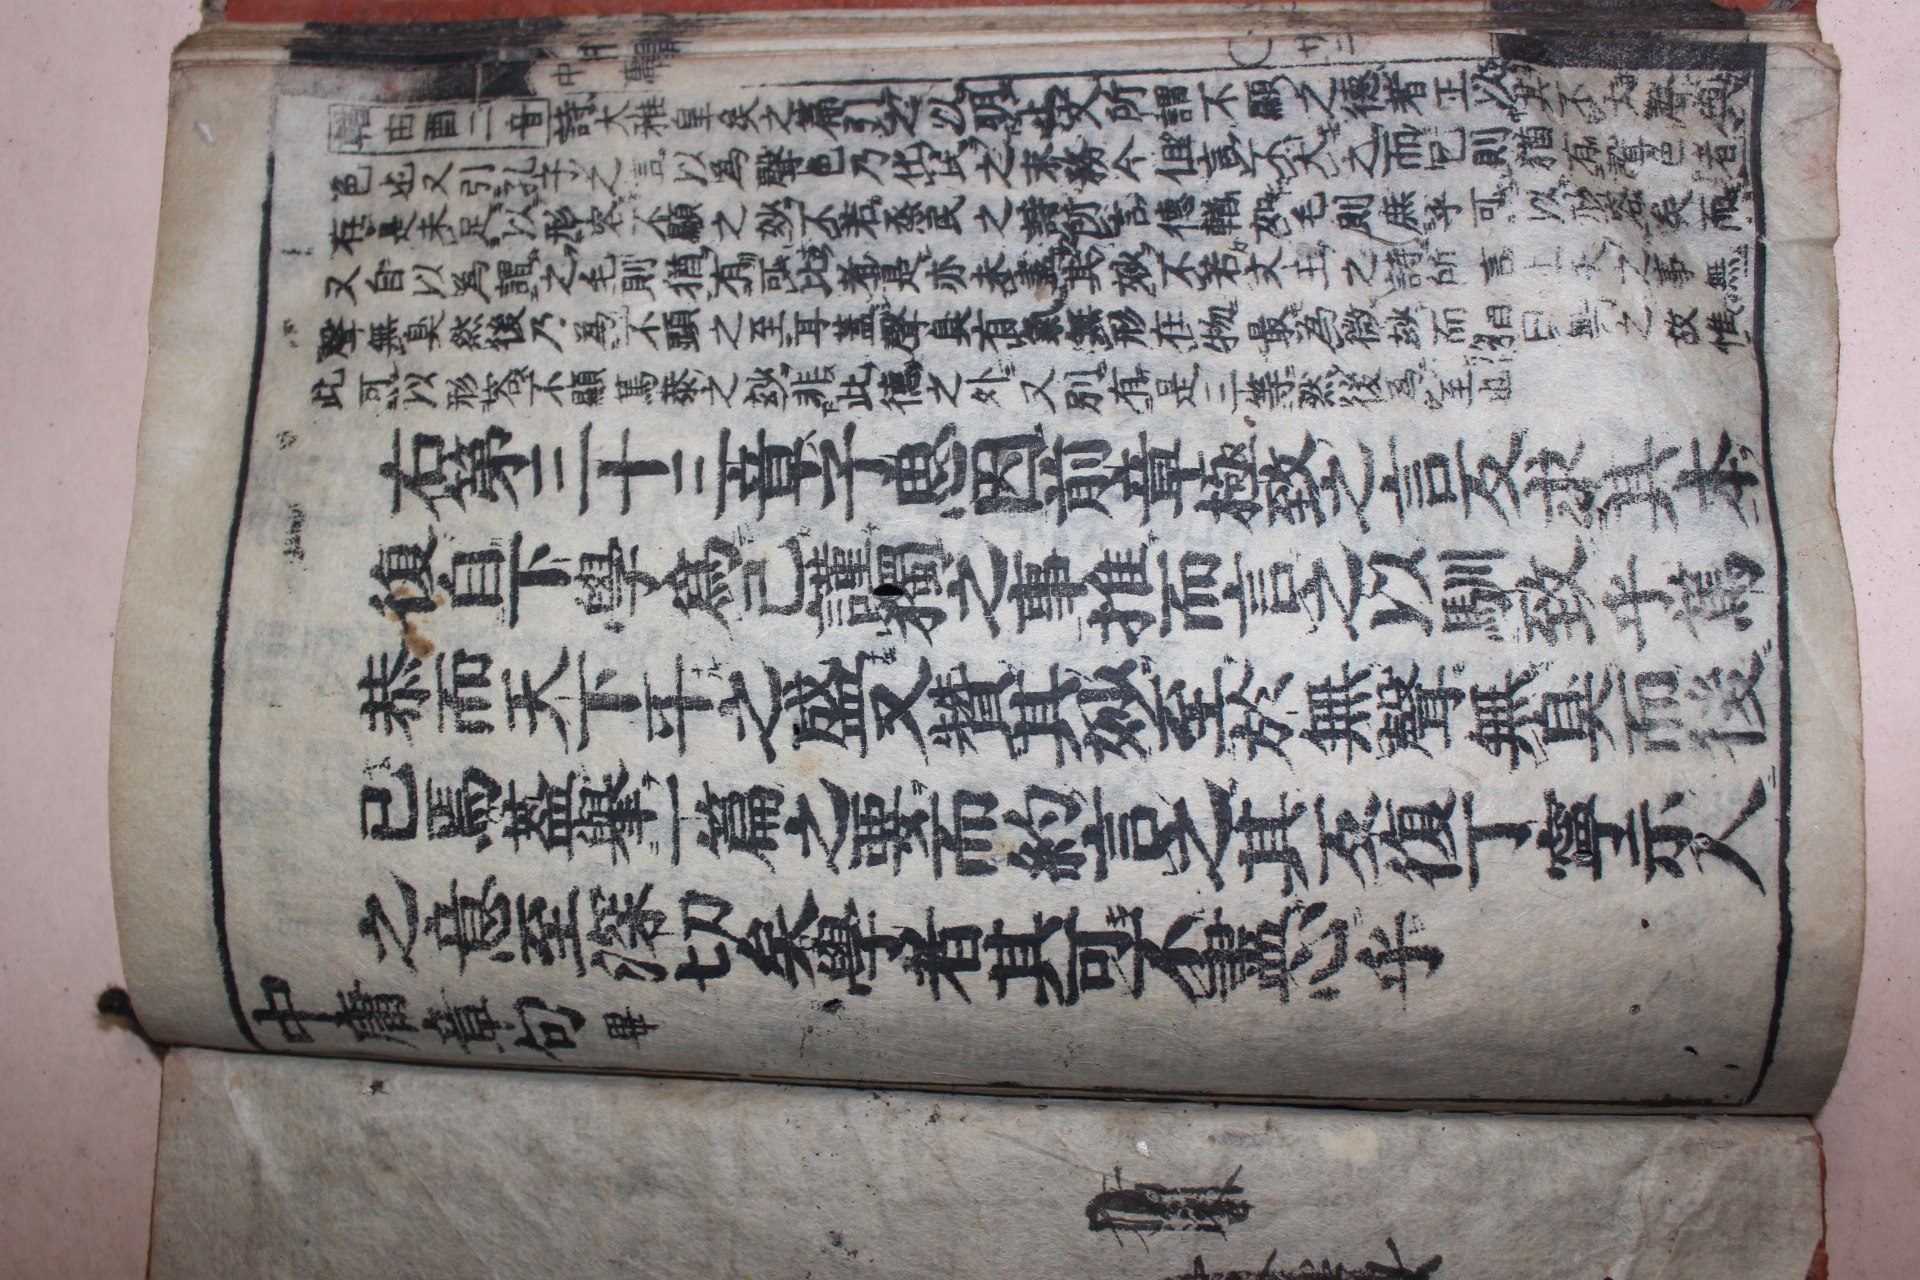 輶由酉二音詩大雅皇矣之篇引之以明上文所謂不顯之德者正以其不大聲與
色也又引孔子之言以爲聲色乃化民之末務今但言不大之而已則猶有聲色者
存是未足以形容不顯之妙不若烝民之詩所言德輶如毛則庶乎可以形容矣而
又自以爲謂之毛則猶有可比者是亦未盡其妙不若文王之詩所言上天之事無
聲無臭然後乃爲不顯之至耳蓋聲臭有氣無形在物最爲微妙而猶曰無之故惟
此可以形容不顯篤恭之妙非此德之外又別有是三等然後爲至也
右第三十三章子思因前章極致之言反求其本
復自下學爲己謹獨之事推而言之以馴致乎篤
恭而天下平之盛又贊其妙至於無聲無臭而後
已焉蓋擧一篇之要而約言之其反復丁寧示人
之意至深切矣學者其可不盡心乎
中庸章句畢